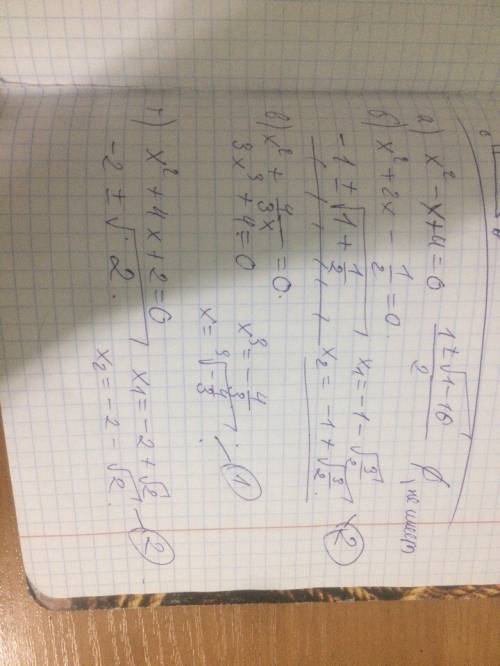 а) x² - x + 4 = 0 (1 ± √(1 - 16))/2 ∅, не имеет
б) x² + 2x - 1/2 = 0.
-1 ± √(1 + 1/2), x₁ = -1 - √(3/2)
x₂ = -1 + √(3/2). (2)
в) x² + 4/(3x) = 0.
3x³ + 4 = 0 x³ = -4/3
x = ∛(-4/3). (1)
г) x² + 4x + 2 = 0
-2 ± √2. x₁ = -2 + √2
x₂ = -2 - √2. (2)